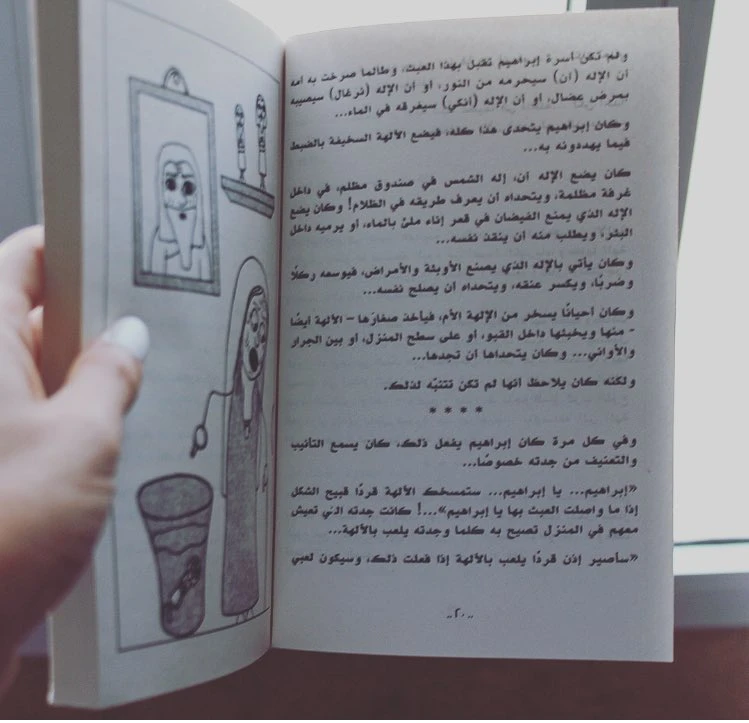 ولم تكن أسرة إبراهيم تقبل بهذا العبث، وطالما صرخت به أمه
أن الإله (آن) سيحرمه من النور، أو أن الإله (نرغال) سيصيبه
بمرض عضال، أو أن الإله (أنكي) سيغرقه في الماء...
وكان إبراهيم يتحدى هذا كله، فيضع الآلهة السخيفة بالضبط
فيما يهددونه به...
كان يضع الإله آن، إله الشمس في صندوق مظلم، في داخل
غرفة مظلمة، ويتحداه أن يعرف طريقه في الظلام! وكان يضع
الإله الذي يمنع الفيضان في قعر إناء ملئ بالماء، أو يرميه داخل
البئر، ويطلب منه أن ينقذ نفسه...
وكان يأتي بالإله الذي يصنع الأوبئة والأمراض، فيوسعه ركلًا
وضربًا، ويكسر عنقه، ويتحداه أن يصلح نفسه...
وكان أحيانًا يسخر من الإلهة الأم، فيأخذ صغارها – الآلهة أيضًا
- منها ويخبئها داخل القبو، أو على سطح المنزل، أو بين الجرار
والأواني... وكان يتحداها أن تجدها...
ولكنه كان يلاحظ أنها لم تكن تتنبّه لذلك.
* * * *
وفي كل مرة كان إبراهيم يفعل ذلك، كان يسمع التأنيب
والتعنيف من جدته خصوصًا...
«إبراهيم... يا إبراهيم... ستمسخك الآلهة قردًا قبيح الشكل
إذا ما واصلت العبث بها يا إبراهيم»...! كانت جدته التي تعيش
معهم في المنزل تصيح به كلما وجدته يلعب بالآلهة...
«سأصير إذن قردًا يلعب بالآلهة إذا فعلت ذلك، وسيكون لعبي
..٢٠..